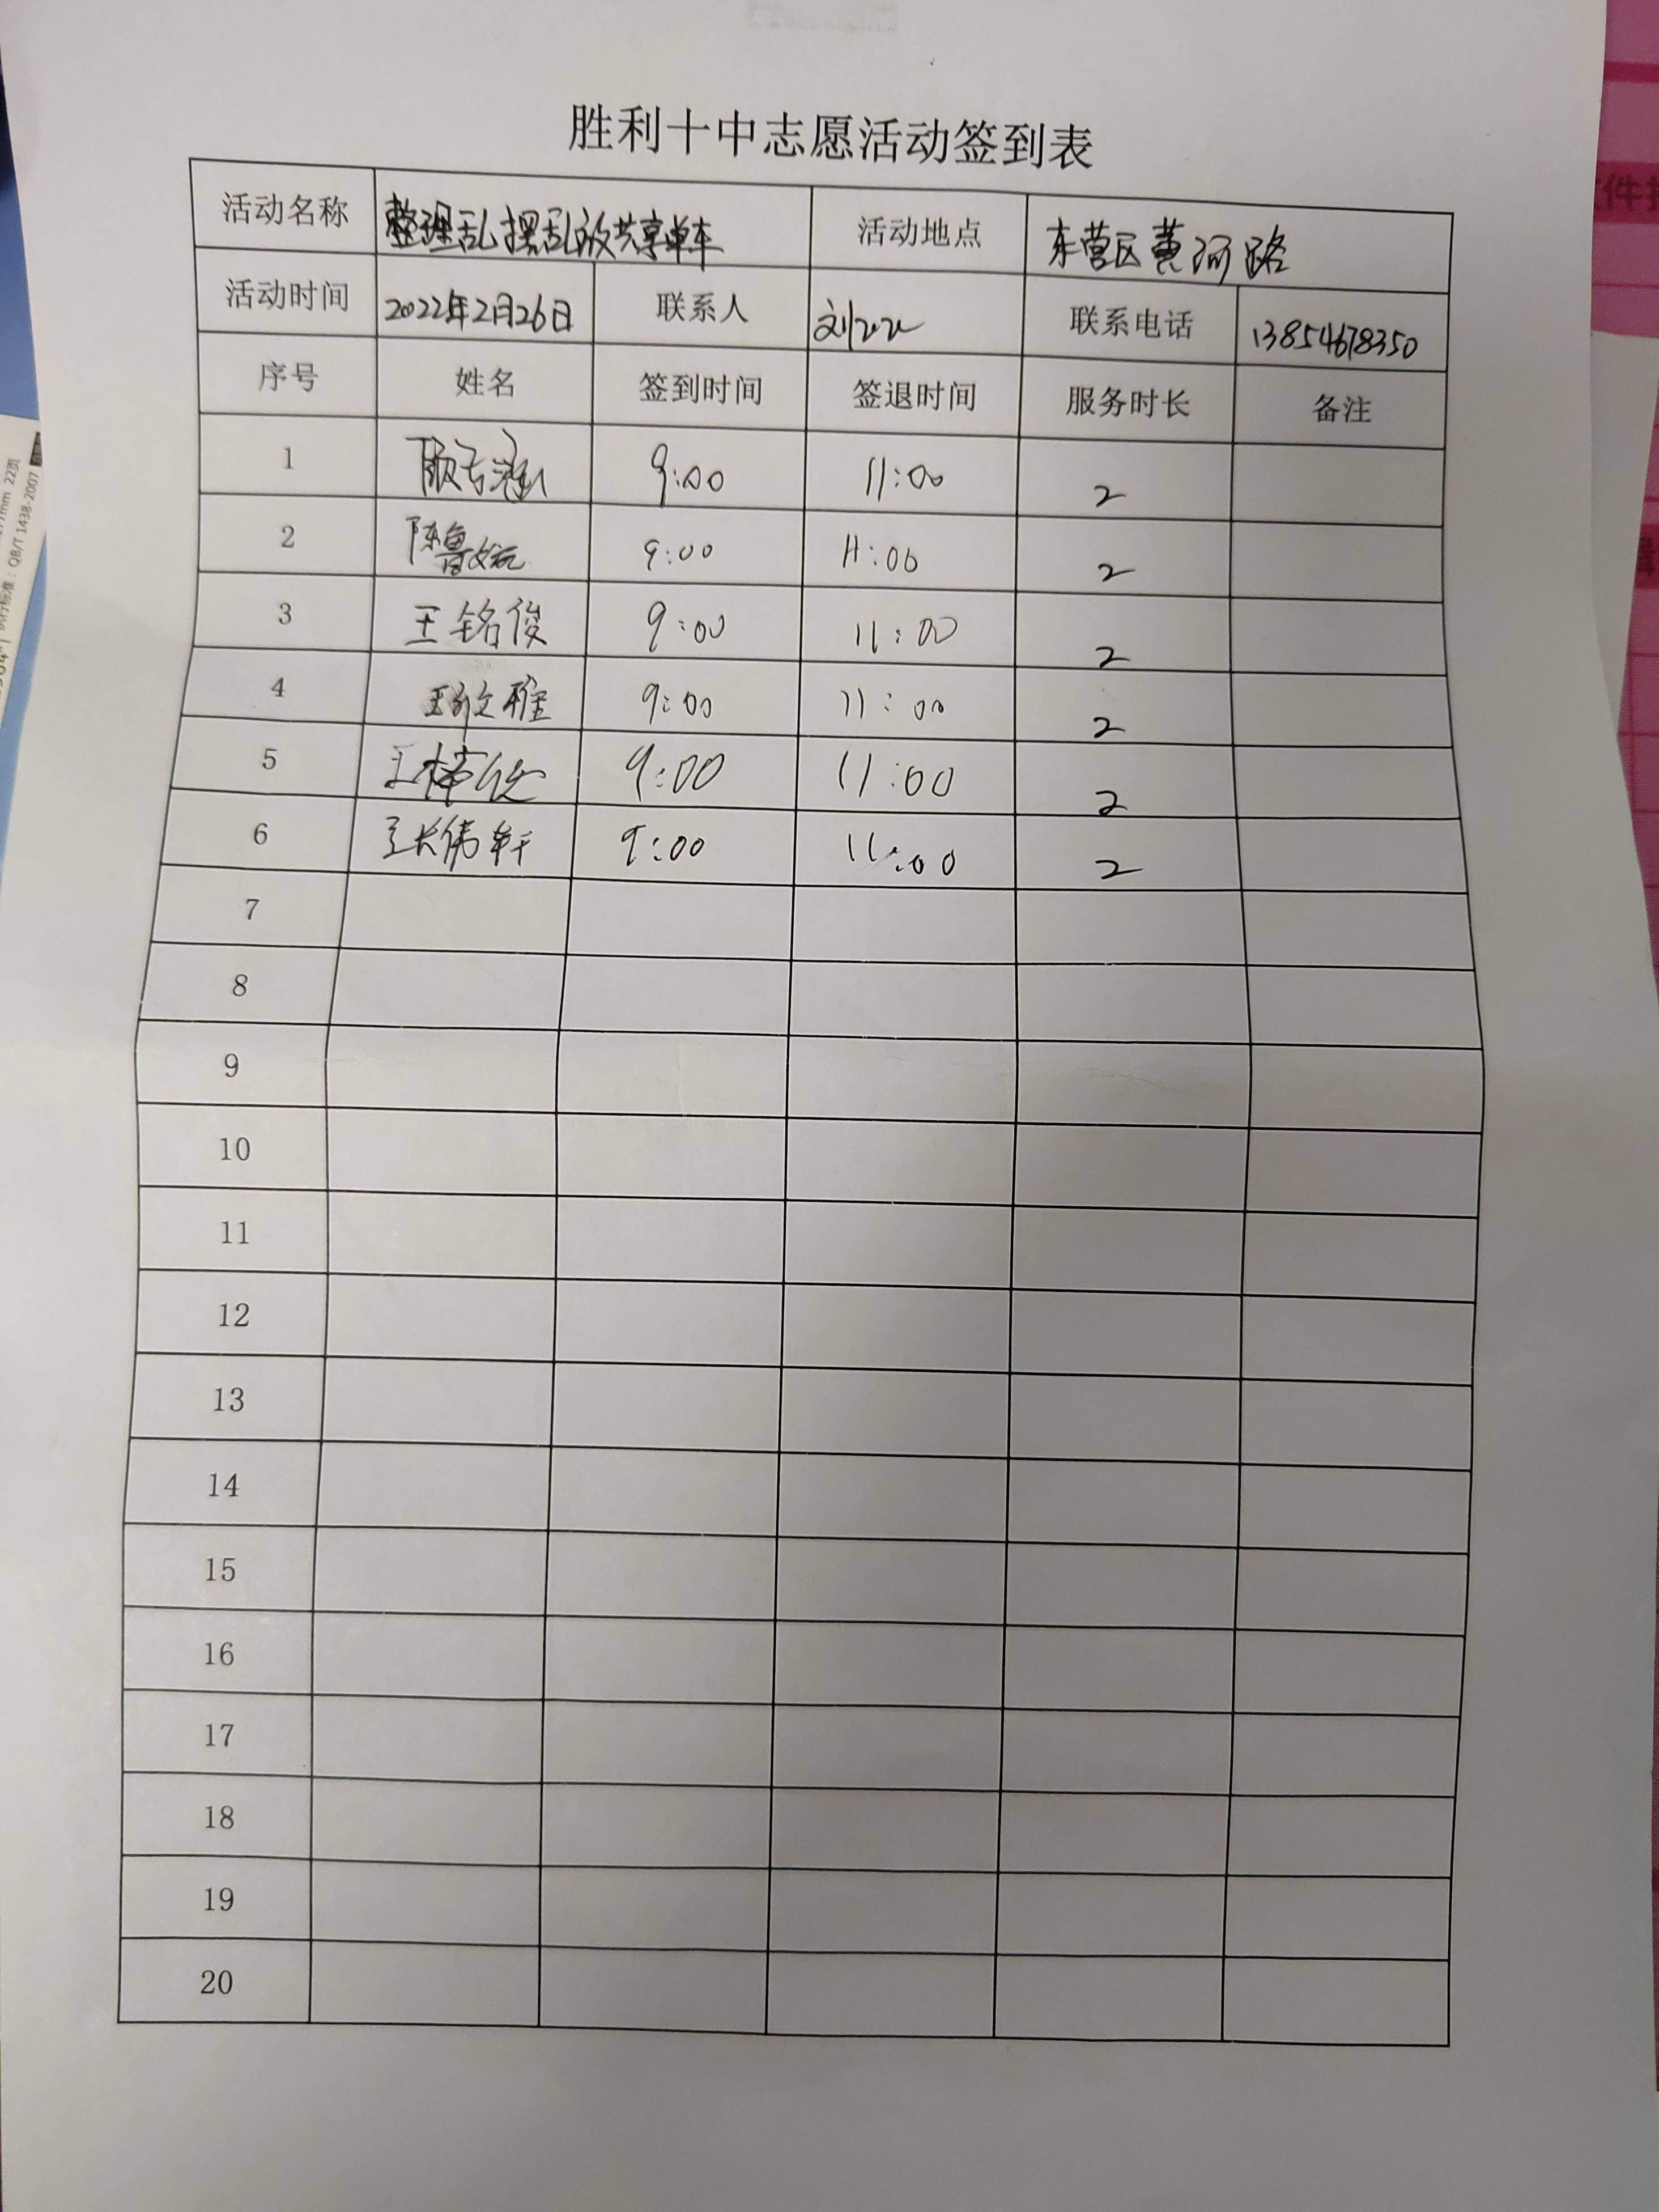 胜利十中志愿活动签到表
活动名称 整理乱摆乱放共享单车 活动地点 东营区黄河路
活动时间 2022年2月26日 联系人 刘 联系电话 13854678350
序号 姓名 签到时间 签退时间 服务时长 备注
1 9:00 11:00 2
2 陈鲁 9:00 11:00 2
3 王铭俊 9:00 11:00 2
4 王敬文雅 9:00 11:00 2
5 王梓 9:00 11:00 2
6 张伟轩 9:00 11:00 2
7
8
9
10
11
12
13
14
15
16
17
18
19
20
22页
QB/T 1438-2007